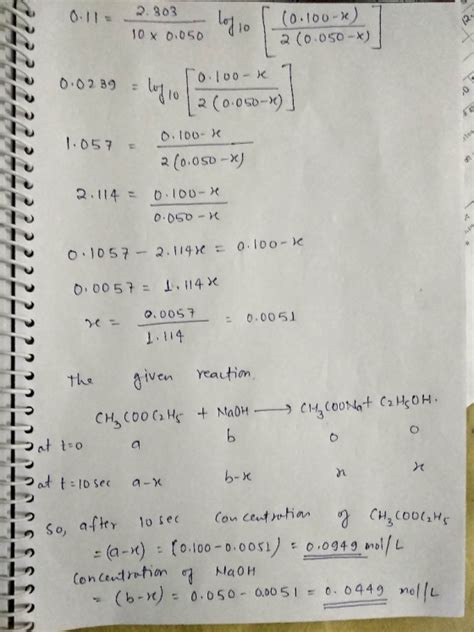 0.11 = 2.303 / 10 × 0.050 log10 [ (0.100-x) / 2 (0.050-x) ]
0.0239 = log10 [ 0.100-x / 2 (0.050-x) ]
1.057 = 0.100-x / 2 (0.050-x)
2.114 = 0.100-x / 0.050-x
0.1057 - 2.114x = 0.100-x
0.0057 = 1.114x
x = 0.0057 / 1.114 = 0.0051
The given reaction.
CH3COOC2H5 + NaOH ⟶ CH3COONa + C2H5OH.
at t=0 a b 0 0
at t=10 sec a-x b-x x x
So, after 10 sec concentration of CH3COOC2H5
= (a-x) = (0.100-0.0051) = 0.0949 mol/L
Concentration of NaOH
= (b-x) = 0.050-0.0051 = 0.0449 mol/L